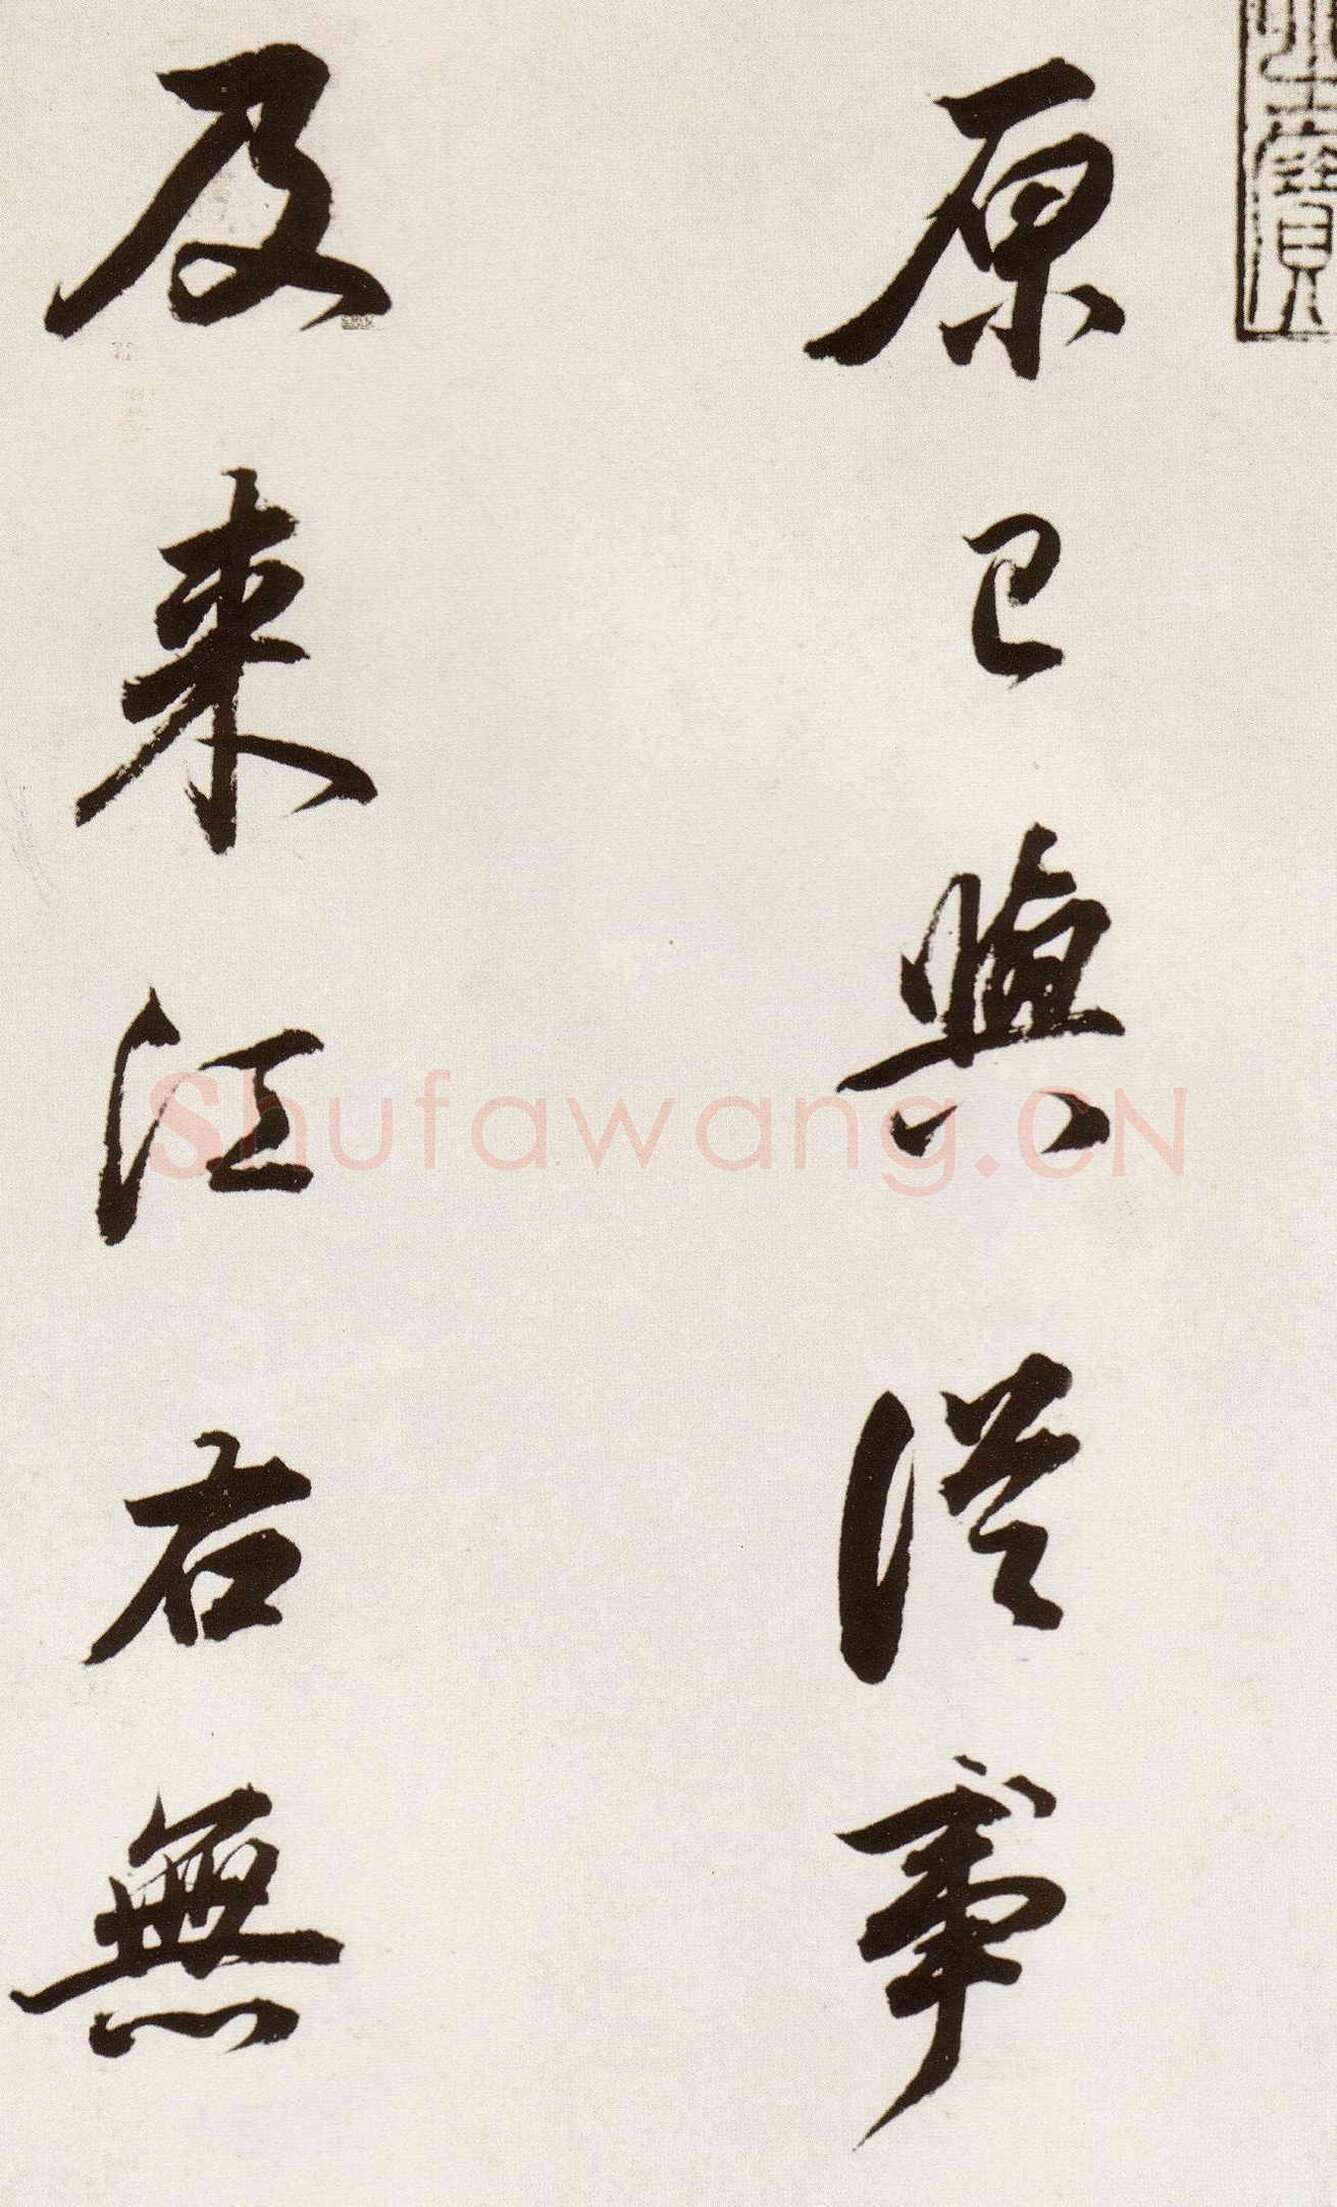 原已與從事
及来江右無
Shufawang.CN